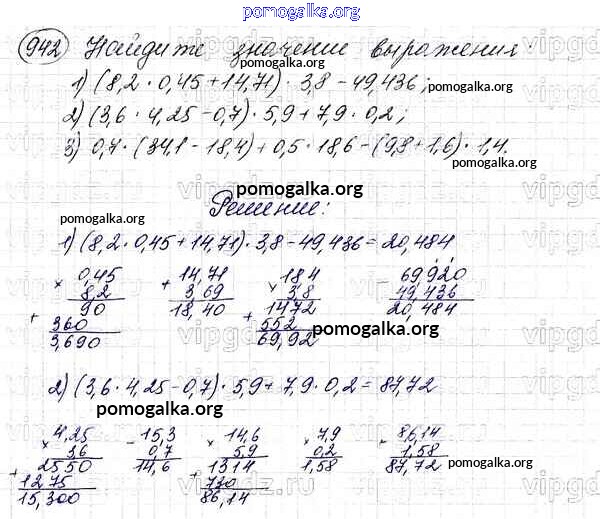 pomogalka.org
942 Найдите значение выражения:
1) (8,2 · 0,45 + 14,71) · 3,8 - 49,436; pomogalka.org
2) (3,6 · 4,25 - 0,7) · 5,9 + 7,9 · 0,2;
3) 0,7 · (34,1 - 18,4) + 0,5 · 18,6 - (9,8 + 1,6) · 1,4.
pomogalka.org
pomogalka.org
pomogalka.org Решение:
1) (8,2 · 0,45 + 14,71) · 3,8 - 49,436 = 20,484
× 0,45 + 14,71 × 18,4 - 69,920
8,2 3,69 3,8 49,436
90 18,40 1472 20,484
+ 360 + 552 pomogalka.org
3,690 69,92
2) (3,6 · 4,25 - 0,7) · 5,9 + 7,9 · 0,2 = 87,72
pomogalka.org pomogalka.org
× 4,25 - 15,3 × 14,6 × 7,9 + 86,14
3,6 0,7 5,9 0,2 1,58
2550 14,6 1314 1,58 87,72 pomogalka.org
+ 1275 + 730
15,300 86,14